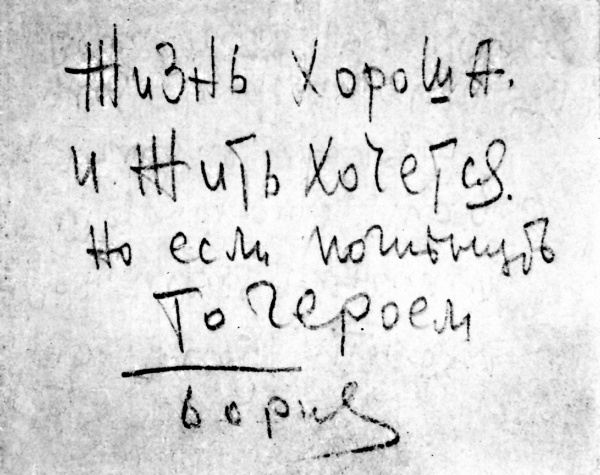 Жизнь хороша.
и жить хочется.
но если погибнуть
то героем
Борис